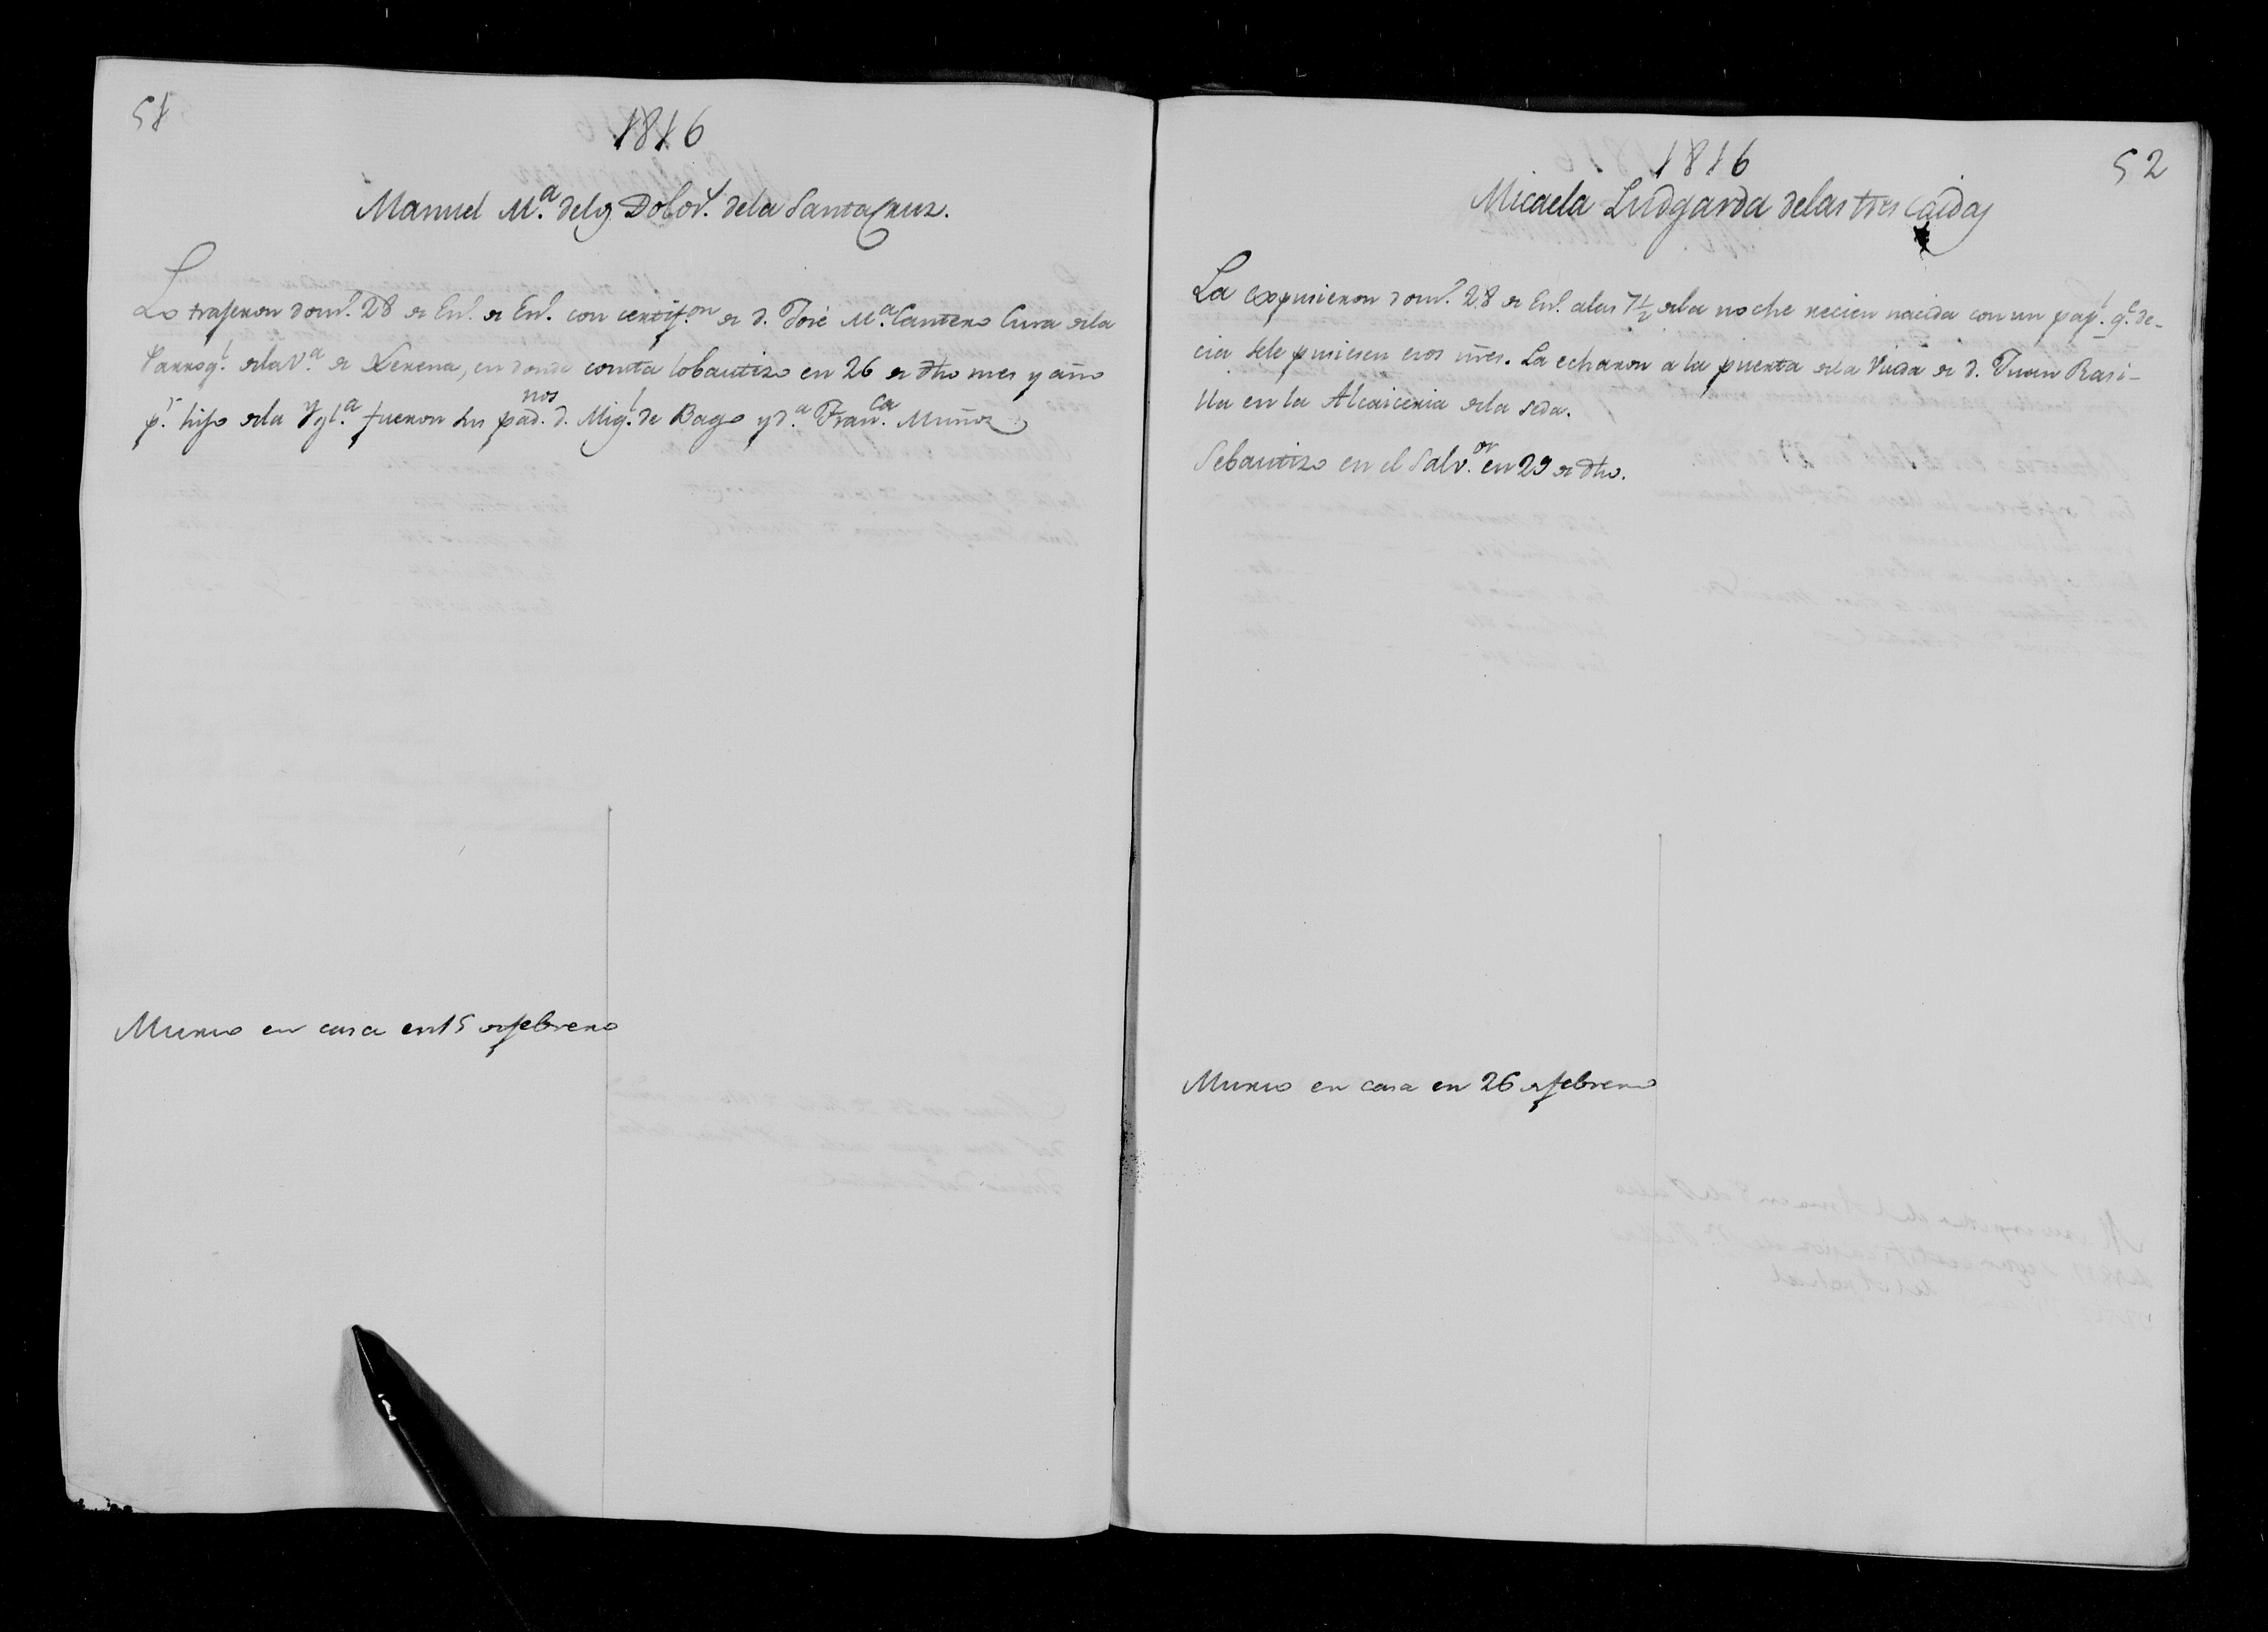 51
1816
Manuel M.ª de los Dolor.s de la Santa Cruz.
Lo trageron dom.º 28 de En.º de En.º con certif.on de d. José M.ª Cantero Cura de la
Parroq.l de la V.ª de Lerena, en donde consta lo bautizo en 26 de dho mes y año
p.r hijo de la Ygl.ª fueron sus padnos. d. Mig.l de Bago y d.ª Fran.ca Muñoz
Murio en casa en 15 de febrero
52
1816
Micaela Ludgarda de las tres caidas
La expusieron dom.º 28 de En.º a las 7½ de la noche recien nacida con un pap.l q.e de-
cia se le pusiesen esos nres. La echaron a la puerta de la Viuda de d. Juan Rasi-
lla en la Alcaiceria de la seda.
Se bautizo en el Salv.or en 29 de dho.
Murio en casa en 26 de febrero